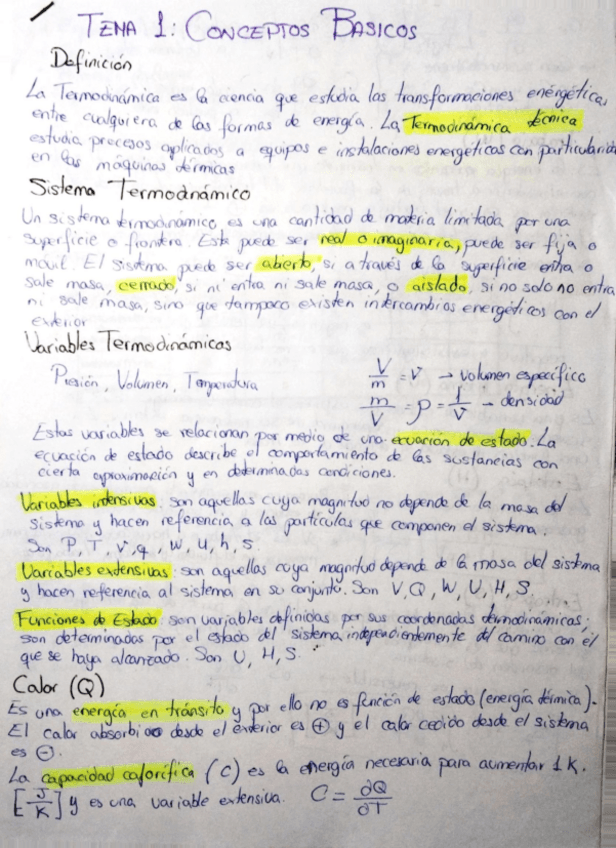 TEMA 1: CONCEPTOS BASICOS
Definición
La Termodinámica es la ciencia que estudia las transformaciones energéticas
entre cualquiera de las formas de energía. La Termodinámica técnica
estudia procesos aplicados a equipos e instalaciones energéticas con
en las máquinas térmicas
Sistema Termodinámico
Un sistema termodinámico es una cantidad de materia limitada por una
superficie o frontera. Este puede ser real o imaginaria, puede ser fija o
móvil. El sistema puede ser abierto, si a través de la superficie entra o
sale masa, cerrado, si ni entra ni sale masa, o aislado, si no solo no entra
ni sale masa, sino que tampoco existen intercambios energéticos con el
exterior
Variables Termodinámicas
Presión, Volumen, Temperatura
V/m = v → volumen específico
m/V = ρ = 1/v → densidad
Estas variables se relacionan por medio de una ecuación de estado. La
ecuación de estado describe el comportamiento de las sustancias con
cierta aproximación y en determinadas condiciones.
Variables intensivas: son aquellas cuya magnitud no depende de la masa del
sistema y hacen referencia a las partículas que componen el sistema.
Son P, T, v, q, w, u, h, s
Variables extensivas: son aquellas cuya magnitud depende de la masa del sistema
y hacen referencia al sistema en su conjunto. Son V, Q, W, U, H, S
Funciones de Estado: son variables definidas por sus coordenadas termodinámicas;
son determinadas por el estado del sistema independientemente del camino con el
que se haya alcanzado. Son U, H, S.
Calor (Q)
Es una energía en tránsito y por ello no es función de estado (energía térmica).
El calor absorbido desde el exterior es ⊕ y el calor cedido desde el sistema
es ⊖.
La capacidad calorífica (C) es la energía necesaria para aumentar 1 K.
[J/K] y es una variable extensiva. C = ∂Q/∂T